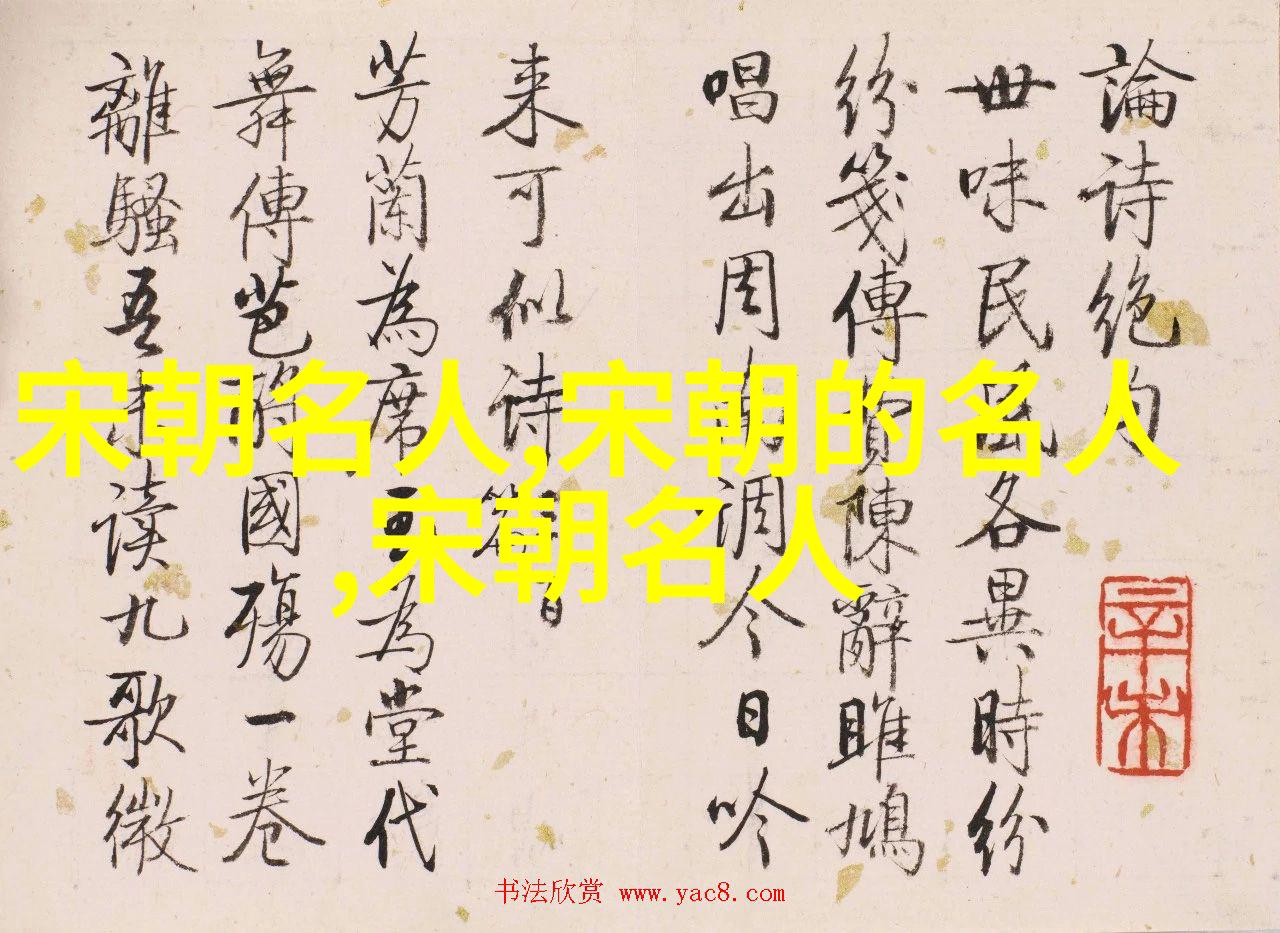 論诗绝句
世味民風各異時纷
纷笺傳陳辭雎鳩
唱出周南調今日吟
来可似诗篇
芳蘭為席玉為堂代
舞傳芭國殤一卷
離騷吾未读九歌微
辛未
宋朝名人,宋朝的名人
,宋朝名人
书法欣赏 www.yac8.com